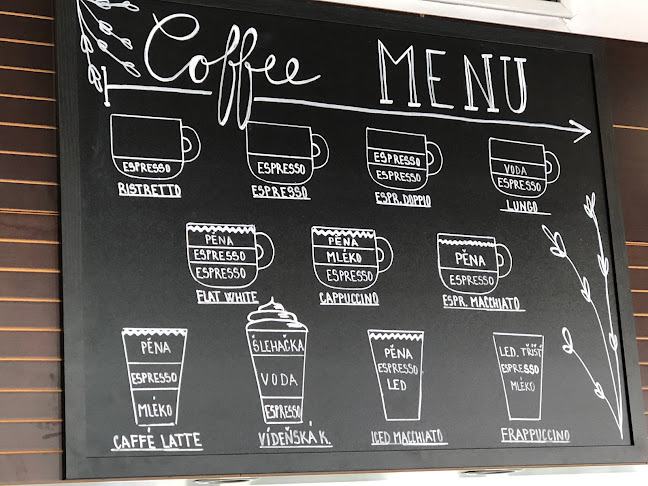 Coffee MENU
ESPRESSO
RISTRETTO
ESPRESSO
ESPRESSO
ESPRESSO
ESPRESSO
ESPR. DOPPIO
VODA
ESPRESSO
LUNGO
PĚNA
ESPRESSO
ESPRESSO
FLAT WHITE
PĚNA
MLÉKO
ESPRESSO
CAPPUCCINO
PĚNA
ESPRESSO
ESPR. MACCHIATO
PĚNA
ESPRESSO
MLÉKO
CAFFÉ LATTE
ŠLEHAČKA
VODA
ESPRESSO
VÍDEŇSKÁ K.
PĚNA
ESPRESSO
LED
ICED MACCHIATO
LED. TŘÍŠŤ
ESPRESSO
MLÉKO
FRAPPUCCINO